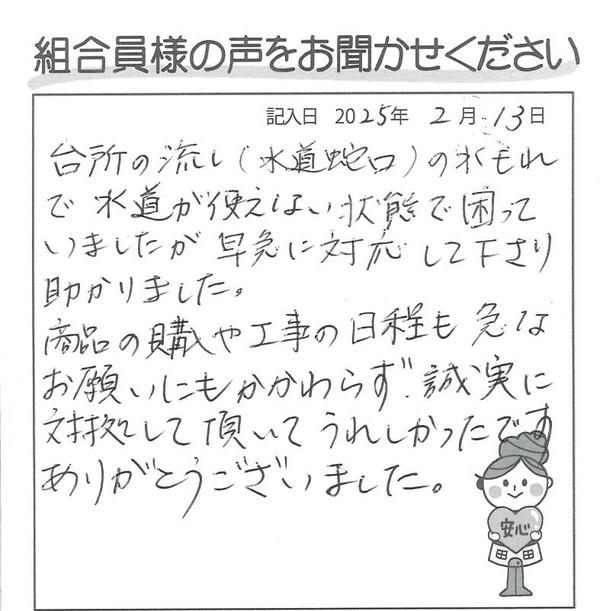 組合員様の声をお聞かせください
記入日 2025年 2月 13日
台所の流し(水道蛇口)の水もれ
で水道が使えない状態で困って
いましたが早急に対応して下さり
助かりました。
商品の購入や工事の日程も急な
お願いにもかかわらず、誠実に
対処して頂いてうれしかったです
ありがとうございました。
安心